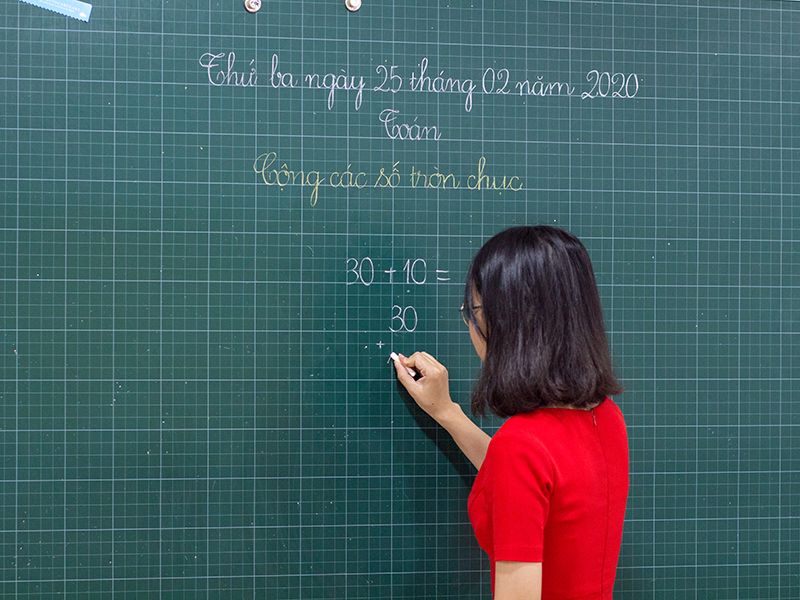 Thứ ba ngày 25 tháng 02 năm 2020
Toán
Cộng các số tròn chục
30 + 10 =
30
+